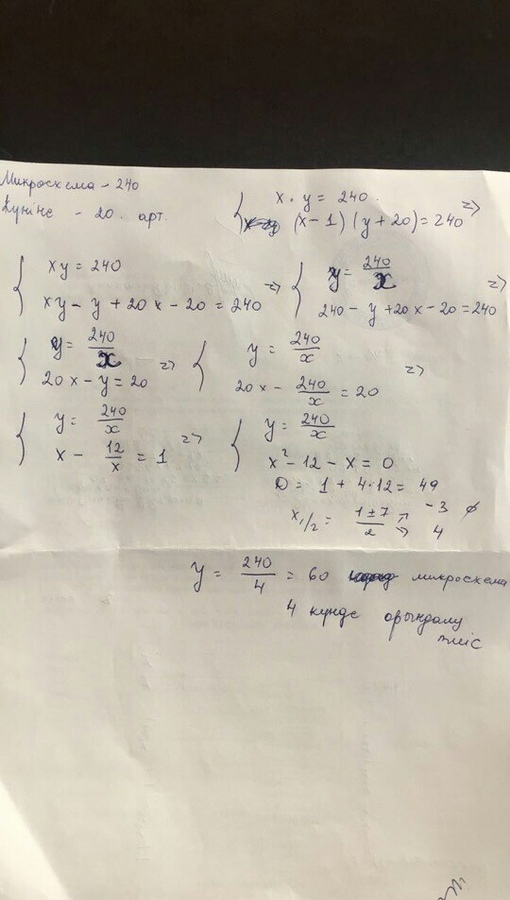 Микросхема - 240
Күніне - 20. арт.
x · y = 240
(x - 1) (y + 20) = 240 =>
xy = 240
xy - y + 20x - 20 = 240 =>
y = 240/x
240 - y + 20x - 20 = 240 =>
y = 240/x
20x - y = 20 =>
y = 240/x
20x - 240/x = 20 =>
y = 240/x
x - 12/x = 1 =>
y = 240/x
x² - 12 - x = 0
D = 1 + 4·12 = 49
x1/2 = (1 ± 7)/2 -3 ∅
4
y = 240/4 = 60 микросхема
4 күнде орындалу
тиіс